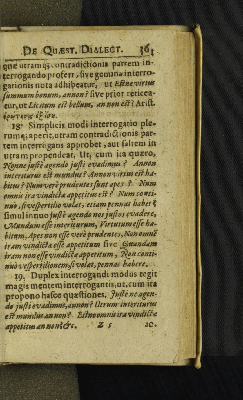 DE QUÆST. DIALECT. 361
que utramq; contradictionis partem in-
terrogando profert, sive gemina interro-
gationis nota adhibeatur, ut Est ne virtus
summum bonum, annon? sive prior reticea-
tur, ut Licitum est bellum, an non est? Arist.
18. Simplicis modi interrogatio ple-
rumq; aperit, utram contradictionis par-
tem interrogans approbet, aut saltem in
utram propendeat. Ut, cum ita quæro,
Nonne justè agendo justi evadimus? Annon
interiturus est mundus? Annon virium est ha-
bitus? Num verè prudentes sunt apes? Num
omnis ira vindictæ appetitus est? Num conti-
nuò, si vespertilio volat, etiam pennas habet?
simul innuo justè agendo nos justos evadere,
Mundum esse interiturum, Virtutem esse ha-
bitum, Apes non esse verè prudentes, Non omnē
iram vindictæ esse appetitum sive Quandam
iram non esse vindictæ appetitum, Non conti-
nuò vespertilionem si volat, pennas habere.
19. Duplex interrogandi modus tegit
magis mentem interrogantis, ut, cum ita
propono hasce quæstiones. Justè ne agen-
do justi evadimus, annon? Utrum interiturus
est mundus an non? Est ne omnis ira vindictæ
appetitus an non? &c. Z 5 20.